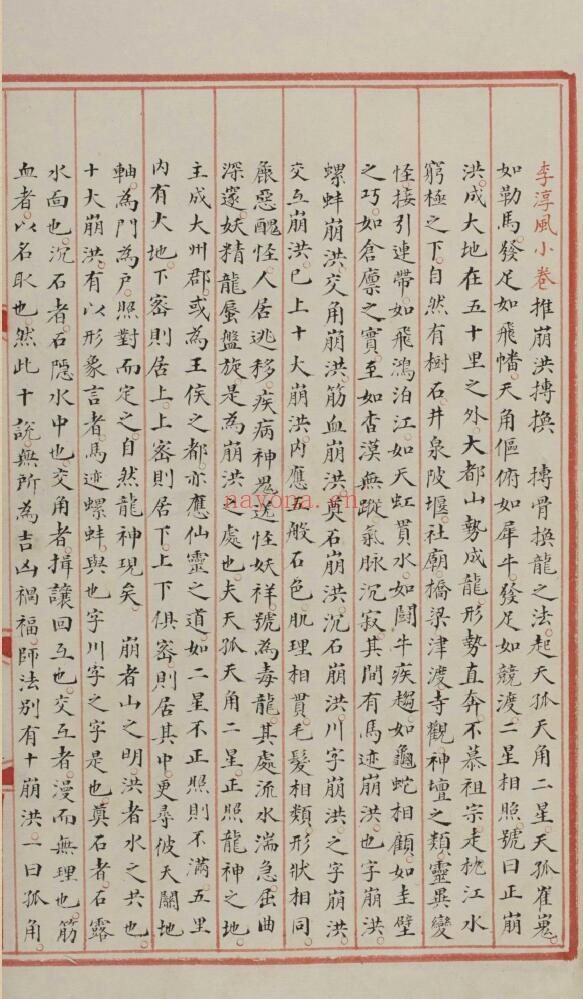 李淳風小卷 推崩洪摶換 摶骨換龍之法。起天孤天角二星。天孤崔嵬。
如勒馬。發足如飛幡。天角傴俯如犀牛。發足如競渡。二星相照。號曰正崩
洪。成大地在五十里之外。大都山勢成龍。形勢直奔。不慕祖宗。走枕江水
窮極之下。自然有樹石井泉陂堰。社廟橋梁津渡寺觀。神壇之類。靈異變
怪。接引連帶。如飛鴻泊江。如天虹貫水。如鬪牛疾趨。如龜蛇相顧。如圭璧
之巧。如倉廪之實。至如杳漠無蹤。氣脉沉寂。其間有馬迹崩洪。也字崩洪。
螺蚌崩洪。交角崩洪。筋血崩洪。奠石崩洪。沉石崩洪。川字崩洪。之字崩洪。
交互崩洪。已上十大崩洪。內應五般石色。肌理相貫。毛髮相類。形狀相同。
麄惡醜怪。人居逃移。疾病神鬼。逞怪妖祥。號為毒龍。其處流水湍急。屈曲
深邃。妖精龍蜃盤旋。是為崩洪之處也。夫天孤天角二星。正照龍神之地。
主成大州郡。或為王侯之都。亦應仙靈之道。如二星不正照。則不滿五里
內有大地。下密則居上。上密則居下。上下俱密。則居其中。更尋彼天關地
軸。為門為戶。照對而定之。自然龍神現矣。 崩者山之明。洪者水之共也。
十大崩洪。有以形象言者。馬迹螺蚌。與也字川字之字是也。奠石者。石露
水面也。沉石者。石隱水中也。交角者。揖讓回互也。交互者。漫而無理也。筋
血者。以名取也。然此十說。無所為吉凶禍福。師法別有十崩洪。一曰孤角。
nayona.cn